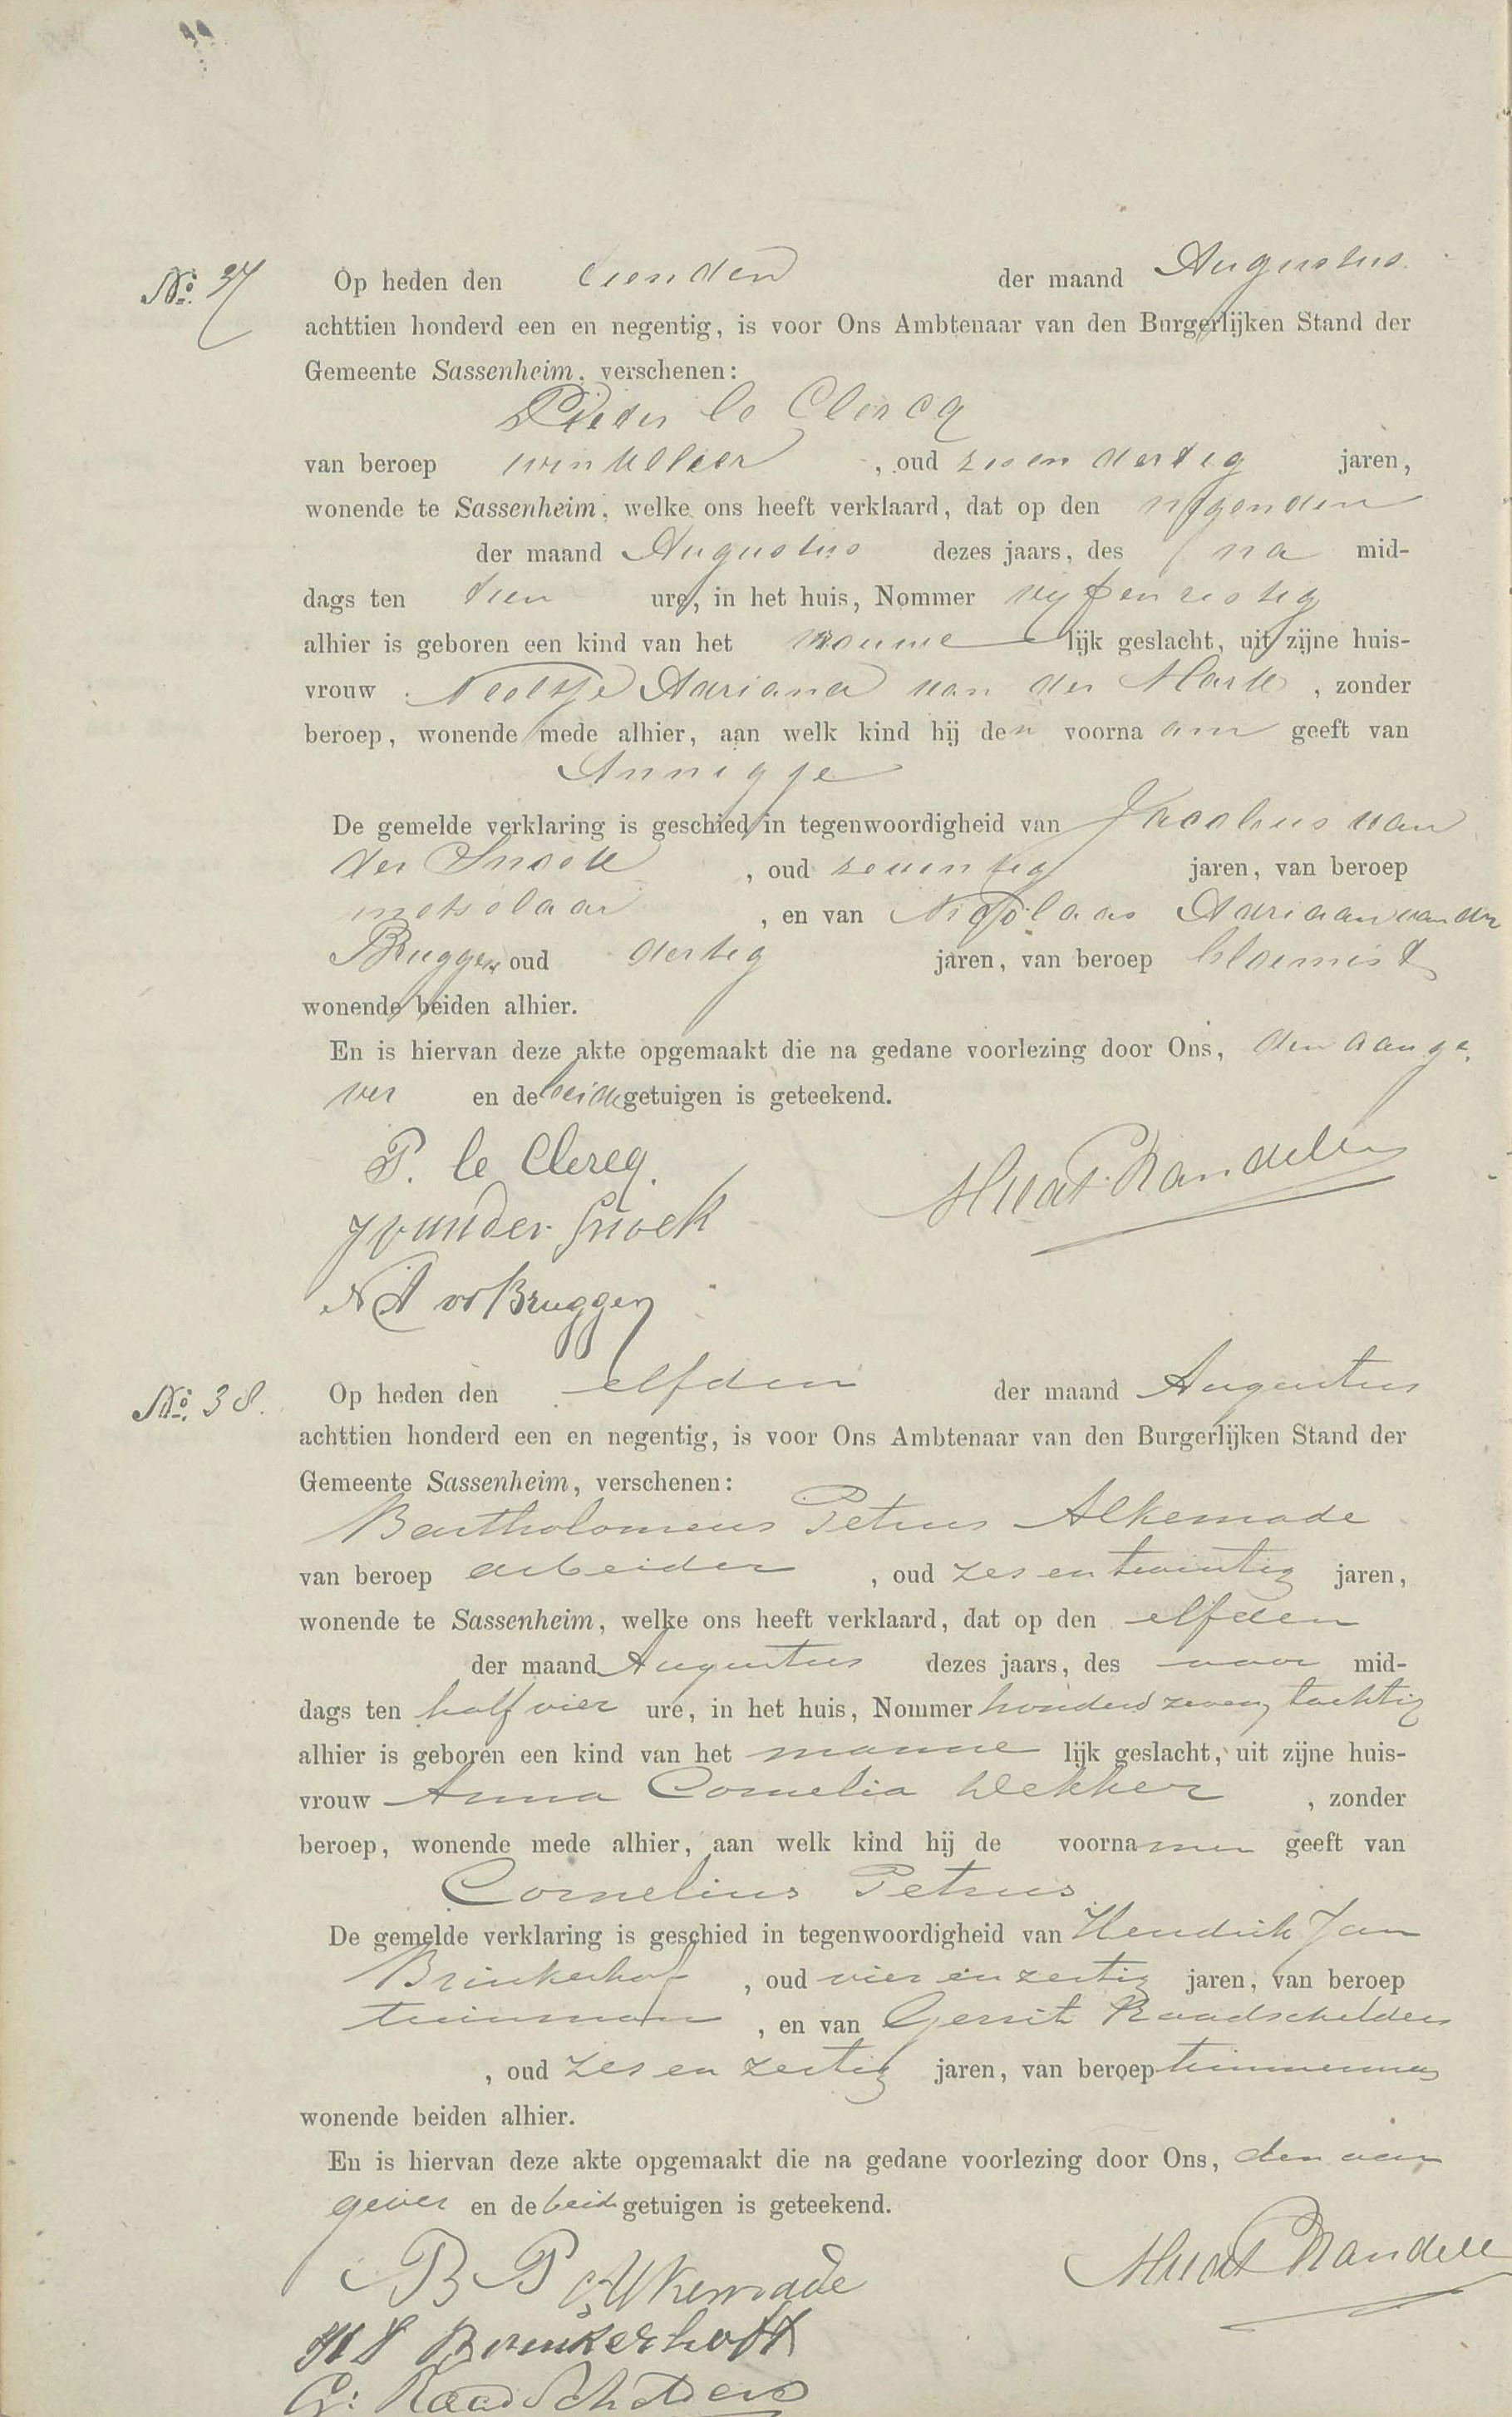 No. 37 Op heden den tienden der maand Augustus
achttien honderd een en negentig, is voor Ons Ambtenaar van den Burgerlijken Stand der
Gemeente Sassenheim, verschenen:
Pieter le Clercq
van beroep winkelier, oud zesendertig jaren,
wonende te Sassenheim, welke ons heeft verklaard, dat op den negenden
der maand Augustus dezes jaars, des na mid-
dags ten tien ure, in het huis, Nommer vijfenzestig
alhier is geboren een kind van het vrouwelijk geslacht, uit zijne huis-
vrouw Neeltje Adriana van der Mark, zonder
beroep, wonende mede alhier, aan welk kind hij den voornaam geeft van
Annigje
De gemelde verklaring is geschied in tegenwoordigheid van Jacobus van
der Snoek, oud zeventig jaren, van beroep
metselaar, en van Nicolaas Adriaan van der
Bruggen oud dertig jaren, van beroep bloemist
wonende beiden alhier.
En is hiervan deze akte opgemaakt die na gedane voorlezing door Ons, den aange-
ver en de beide getuigen is geteekend.
P. le Clercq.
J vander Snoek
N A vd Bruggen
No. 38. Op heden den elfden der maand Augustus
achttien honderd een en negentig, is voor Ons Ambtenaar van den Burgerlijken Stand der
Gemeente Sassenheim, verschenen:
Bartholomeus Petrus Alkemade
van beroep arbeider, oud zes en twintig jaren,
wonende te Sassenheim, welke ons heeft verklaard, dat op den elfden
der maand Augustus dezes jaars, des voor mid-
dags ten half vier ure, in het huis, Nommer honderd zeven tachtig
alhier is geboren een kind van het mannelijk geslacht, uit zijne huis-
vrouw Anna Cornelia Dekker, zonder
beroep, wonende mede alhier, aan welk kind hij de voornamen geeft van
Cornelius Petrus
De gemelde verklaring is geschied in tegenwoordigheid van Hendrik Jan
Brinkerhof, oud vier en zestig jaren, van beroep
tuinman, en van Gerrit Raadschelders
, oud zes en zestig jaren, van beroep timmerman
wonende beiden alhier.
En is hiervan deze akte opgemaakt die na gedane voorlezing door Ons, den aan
gever en de beide getuigen is geteekend.
B P Alkemade
H J Brinkerhoff
G: Raadschelders